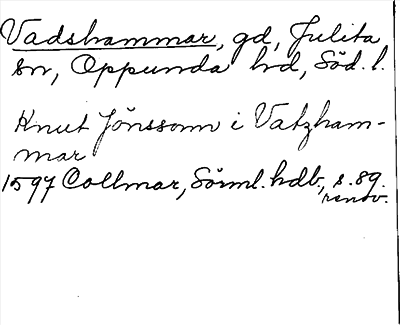 Vadshammar, gd, Julita
sn, Oppunda hd, Söd. l.
Knut Jönssonn i Vatzham-
mar
1597 Collmar, Sörml. hdb., s. 89.
renov.